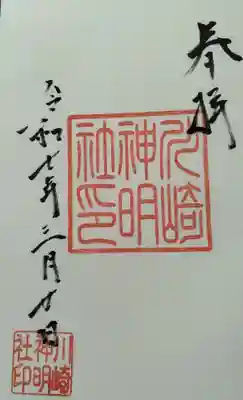 奉拝
川崎
神明
社印
令和七年三月廿日
川崎
神明
社印